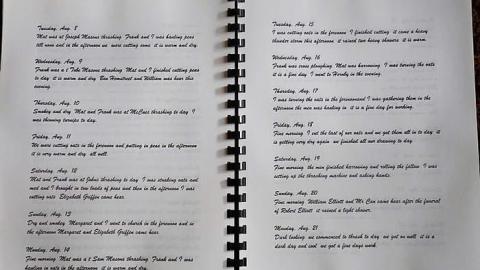 Tuesday, Aug. 8
Mat was at Joseph Masons thrashing Frank and I was hauling peas
till noon and in the afternoon we were cutting some it is warm and dry.
Wednesday, Aug. 9
Frank was at Tebe Masons thrashing Mat and I finished cutting peas
to day it is warm and dry Ben Homstreet and William was hear this
evening.
Thursday, Aug. 10
Smokey and dry Mat and Frank was at McCaes thrashing to day I
was thinning turnips to day.
Friday, Aug. 11
We were cutting oats in the forenoon and putting in peas in the afternoon
it is very warm and dry all well.
Saturday, Aug. 12
Mat and Frank was at Johns thrashing to day I was stroking oats and
med and I brought in two loads of peas and then in the afternoon I was
cutting oats Elizabeth Griffin came hear.
Sunday, Aug. 13
Dry and smokey Margaret and I went to church in the forenoon and in
the afternoon Margaret and Elizabeth Griffin came hear.
Monday, Aug. 14
Fine morning Mat was at Sam Masons thrashing Frank and I was
hauling in oats in the afternoon it is warm and dry.
Tuesday, Aug. 15
I was cutting oats in the forenoon I finished cutting it came a heavy
thunder storm this afternoon it rained two heavy showers it is warm.
Wednesday, Aug. 16
Frank was cross ploughing Mat was harrowing I was turning the oats
it is a fine day I went to Hornby in the
evening.
Thursday, Aug. 17
I was turning the oats in the forenoon and I was gathering them in the
afternoon the men was hauling in it is a fine day for working.
Friday, Aug. 18
Fine morning I cut the last of our oats and we got them all in to day it is
getting very dry again we finished all our drawing to day.
Saturday, Aug. 19
Fine morning the men finished harrowing and rolling the fallow I was
setting up the thrashing machine and asking hands.
Sunday, Aug. 20
Fine morning William Elliott and Mr Can came hear after the funeral
of Robert Elliott it rained a light shower.
Monday, Aug. 21
Dark looking we commenced to thrash to day we got on well it is a
dark day and cool we got a fine days work.